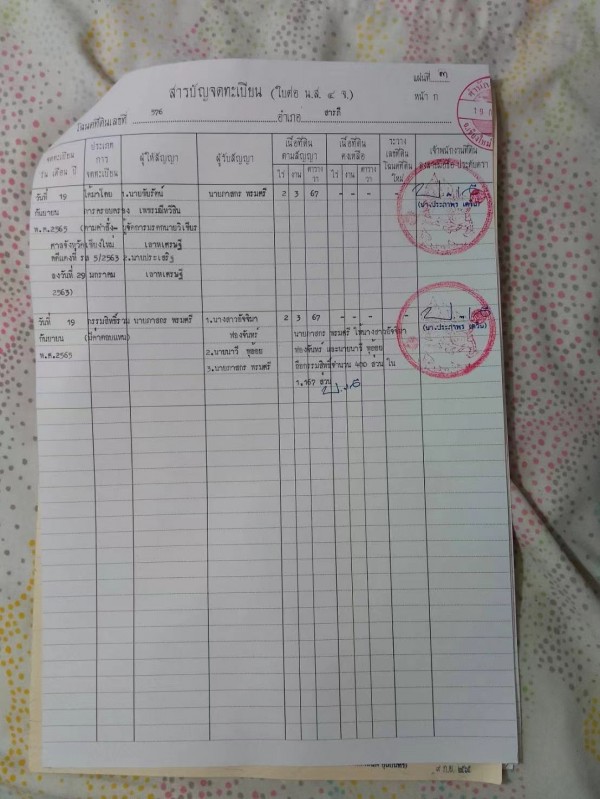 แผ่นที่ ๓
สารบัญจดทะเบียน (ใบต่อ น.ส. ๔ จ.)
หน้า ก
โฉนดที่ดินเลขที่ 576 อำเภอ สารภี
จดทะเบียน วัน เดือน ปี
ประเภทการจดทะเบียน
ผู้ให้สัญญา
ผู้รับสัญญา
เนื้อที่ดินตามสัญญา
ไร่ งาน ตารางวา
เนื้อที่ดินคงเหลือ
ไร่ งาน ตารางวา
ระวาง เลขที่ดิน โฉนดที่ดินใหม่
เจ้าพนักงานที่ดิน ลงลายมือชื่อ ประทับตรา
วันที่ 19 ได้มาโดย 1.นายชัยรัตน์ นายภาสกร พรมศรี 2 3 67 - - -
กันยายน การครอบครอง
พ.ศ.2565 (ตามคำสั่ง- ผู้จัดการมรดกนายวิเชียร
ศาลจังหวัดเชียงใหม่ เลาหเศรษฐี
คดีแดงที่ 5/2563 2.นายประเสริฐ
ลงวันที่ 29 มกราคม เลาหเศรษฐี
2563)
(นางประภาพร
วันที่ 19 กรรมสิทธิ์รวม นายภาสกร พรมศรี 1.นางสาวอัจจิมา 2 3 67 - - - -
กันยายน (มีค่าตอบแทน) ฟองจันทร์ นายภาสกร พรมศรี ให้นางสาวอัจจิมา
พ.ศ.2565 2.นายนาวี ฟองจันทร์ และนายนาวี
3.นายภาสกร พรมศรี ถือกรรมสิทธิ์จำนวน 400 ส่วน ใน
1,167 ส่วน
(นางประภาพร